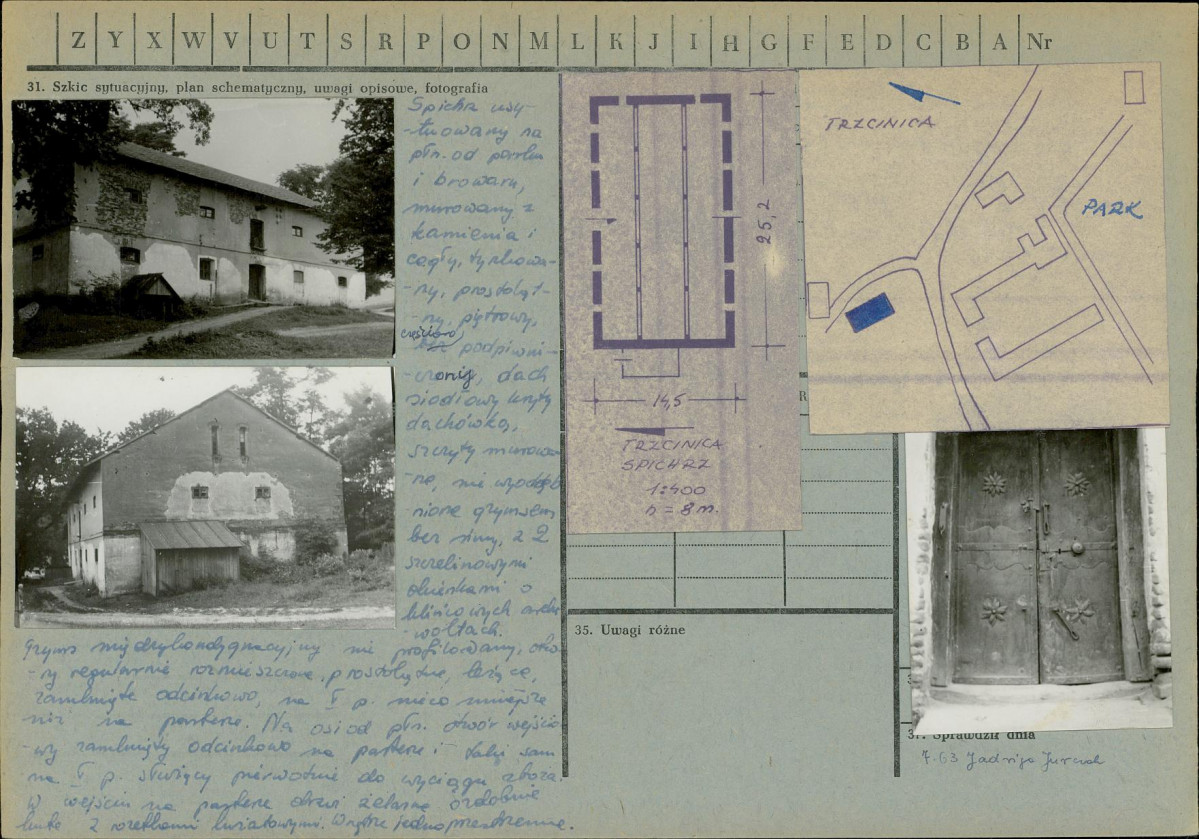 Z Y X W V U T S R P O N M L K J I H G F E D C B A Nr
31. Szkic sytuacyjny, plan schematyczny, uwagi opisowe, fotografia
Spichrz usy-
-tuowany na
płn. od parku
i browaru,
murowany z
kamienia i
cegły, tynkowa-
-ny, prostokąt-
-ny, piętrowy,
częściowo
podpiwni-
-czony, dach
siodłowy kryty
dachówką,
szczyty murowa-
-ne, nie wyodręb
nione gzymsem
bez simy, z 2
szczelinowymi
okienkami o
klińcowych archi
-woltach.
Gzyms międzykondygnacyjny nie profilowany, otwo-
-ry regularnie rozmieszczone, prostokątne, leżące,
zamknięte odcinkowo, na I p. nieco mniejsze
niż na parterze. Na osi od płn. otwór wejścio
-wy zamknięty odcinkowo na parterze i taki sam
na I p. służący pierwotnie do wyciągu zboża.
W wejściu na parterze drzwi żelazne ozdobnie
kute z rozetkami kwiatowymi. Wnętrze jednoprzestrzenne.
25,2
14,5
TRZCINICA
SPICHRZ
1:400
h = 8 m.
TRZCINICA
PARK
R
35. Uwagi różne
37. Sprawdził dnia
7.63 Jadwiga